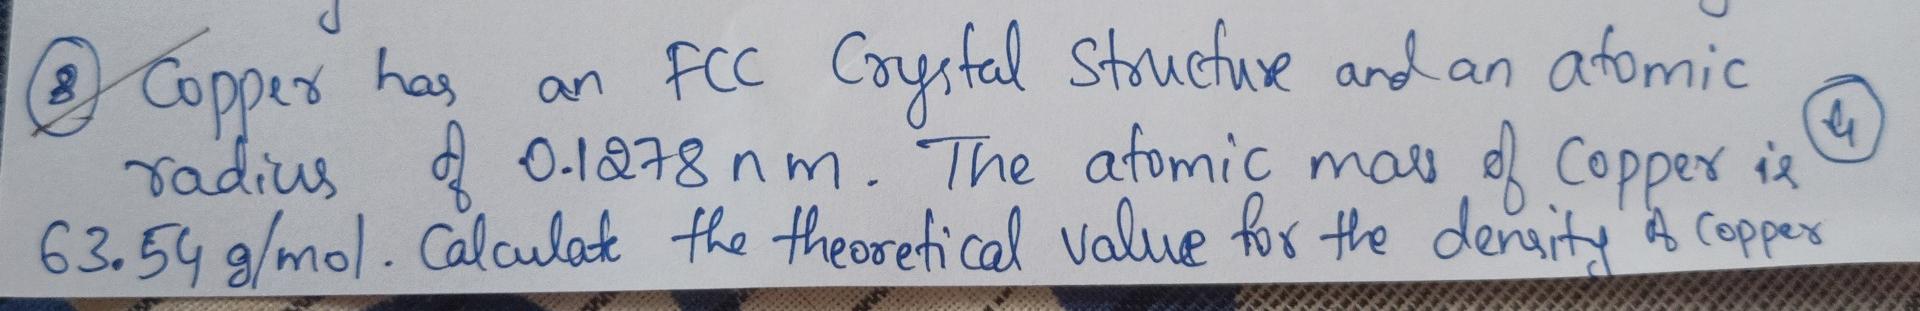 ⑧ Copper has an FCC Crystal Structure and an atomic
radius of 0.1278 nm. The atomic mass of Copper is ④
63.54 g/mol. Calculate the theoretical value for the density of Copper